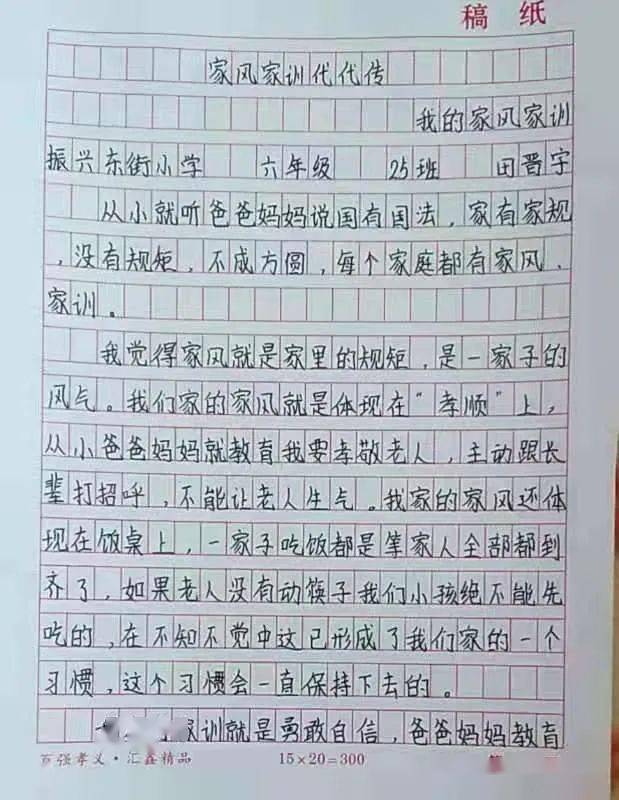 稿纸
家风家训代代传
我的家风家训
振兴东街小学 六年级 25班 田晋宇
从小就听爸爸妈妈说国有国法，家有家规
，没有规矩，不成方圆，每个家庭都有家风、
家训。
我觉得家风就是家里的规矩，是一家子的
风气。我们家的家风就是体现在“孝顺”上，
从小爸爸妈妈就教育我要孝敬老人，主动跟长
辈打招呼，不能让老人生气。我家的家风还体
现在饭桌上，一家子吃饭都是等家人全部都到
齐了，如果老人没有动筷子我们小孩绝不能先
吃的，在不知不觉中这已形成了我们家的一个
习惯，这个习惯会一直保持下去的。
家训就是勇敢自信，爸爸妈妈教育
百强孝义·汇鑫精品 15×20=300